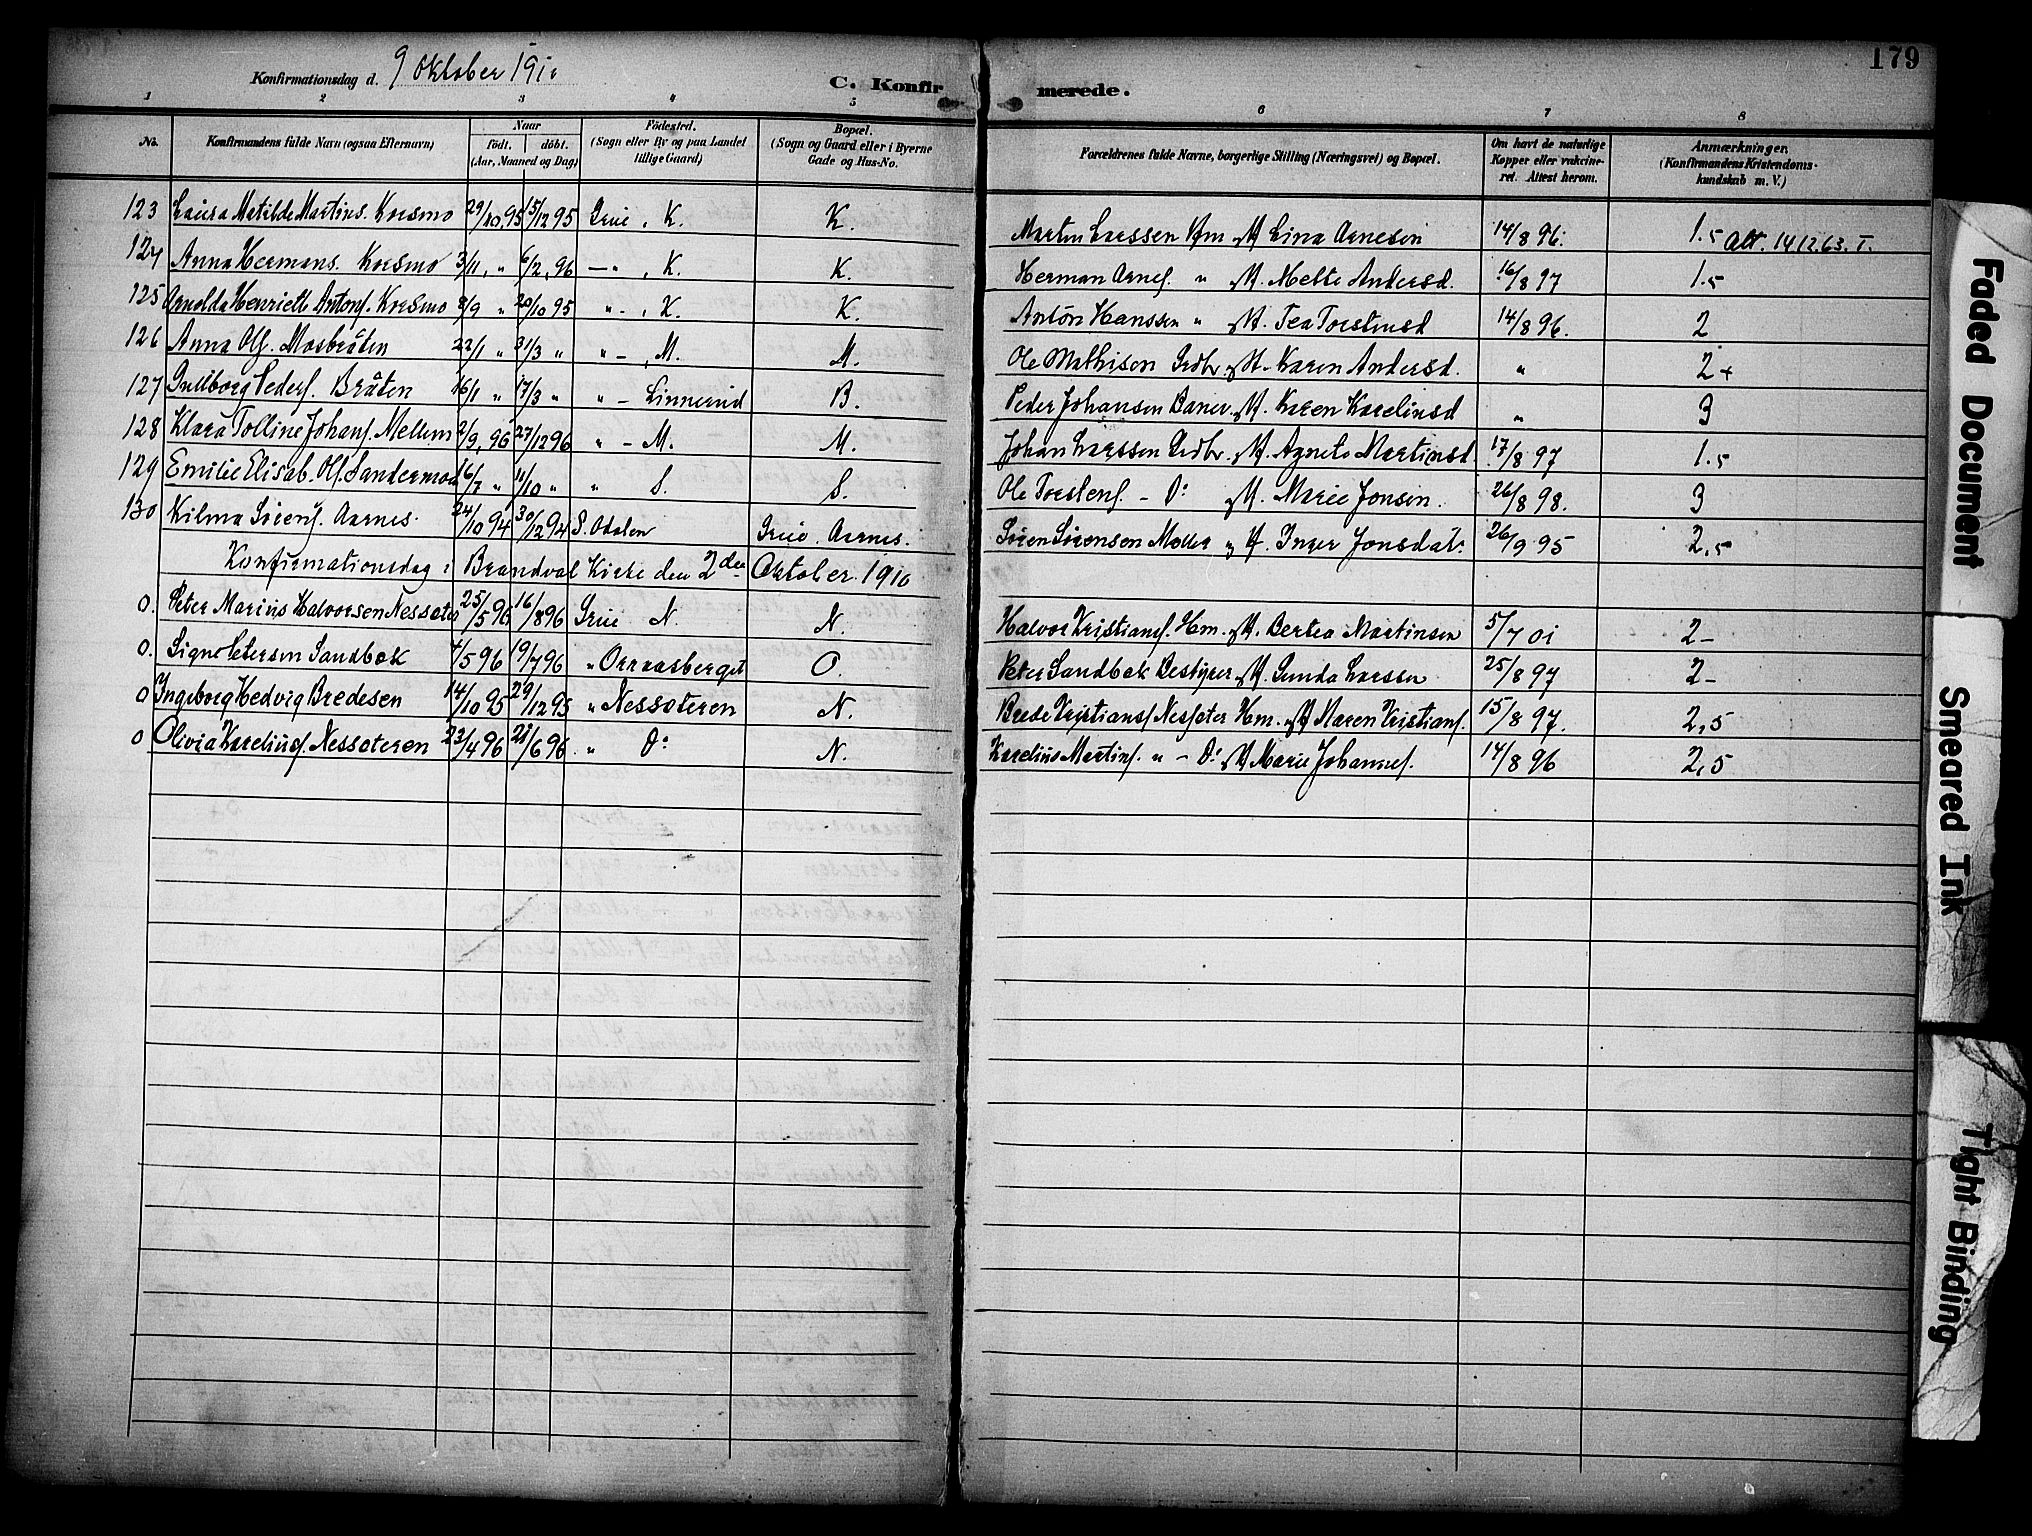 179
Konfirmationsdag d. 9 Oktober 1910
C. Konfirmerede.
1 2 3 4 5 6 7 8
No. Konfirmandens fulde Navn (ogsaa Efternavn) Naar født. døbt. (Aar, Maaned og Dag) Fødested. (Sogn eller By og paa Landet tillige Gaard) Bopæl. (Sogn og Gaard eller i Byerne Gade og Hus-No. Forældrenes fulde Navne, borgerlige Stilling (Næringsvei) og Bopæl. Om havt de naturlige Kopper eller vakcineret. Attest herom. Anmærkninger. (Konfirmandens Kristendomskundskab m. V.)
123 Laura Matilde Martins. Korsmo 29/10, 95 15/12 95 Grue, K. K. Martin Larssen Hm. og H. Lina Arnesen 14/8 96. 1.5 Att. 14.12.63. T.
124 Anna Hermans. Korsmo 3/11, " 6/2, 96 — " , K. K. Herman Arnes. " og H. Mette Andersd. 16/8 97 1.5
125 Arnolda Henriette Antons. Korsmo 8/9 " 20/10 95 " - , K. K. Anton Hanssen " og H. Tea Torstensd 14/8 96. 2
126 Anna Ols. Mosbråten 22/1 " 31/3 " " - , M. M. Ole Mathisen Grdbr. og H. Karen Andersd. " 2+
127 Gullborg Peders. Bråten 16/1 " 17/3 " " - Linnerud B. Peder Johansen Baner. og H. Karen Karelinsd " 3
128 Klara Tolline Johans. Mellem 2/9, 96 27/12 96 " - M. M. Johan Larssen Grdbr. og H. Agnete Martinsd 17/8 97 1.5
129 Emilie Elisab. Ols. Sandermoen 16/7 " 11/10 " " S. S. Ole Torstens. - Do og H. Marie Jonsen. 26/8 98. 3
130 Kilma Sørens. Aarnes. 24/10 94 30/12 94 S. Odalen Grue. Aarnes. Søren Sørensen Møller og H. Inger Jonsdat. 26/9 95 2,5
Konfirmationsdag i Brandval Kirke den 2den Oktober 1910
0. Peter Marius Halvorsen Nessoter 25/5 96 16/8 96 Grue N. N. Halvor Kristians. Hm. og H. Bertea Martinsen 5/7 01 2-
0. Signe Petersen Sandbæk 4/5 96 19/7 96 " Orraasberget O. Peter Sandbæk Bestyrer og H. Gunda Larssen 25/8 97 2-
0 Ingeborg Hedvig Bredesen 14/10 95 29/12 95 " Nessoteren N. Brede Kristians. Nessoter Hm. og H Maren Kristians. 15/8 97. 2,5
0 Olivia Karelius. Nessoteren 23/4 96 21/6 96 " Do N. Karelius Martins. " - Do H Marie Johannes. 14/8 96 2,5
Faded Document
Smeared Ink
Tight Binding